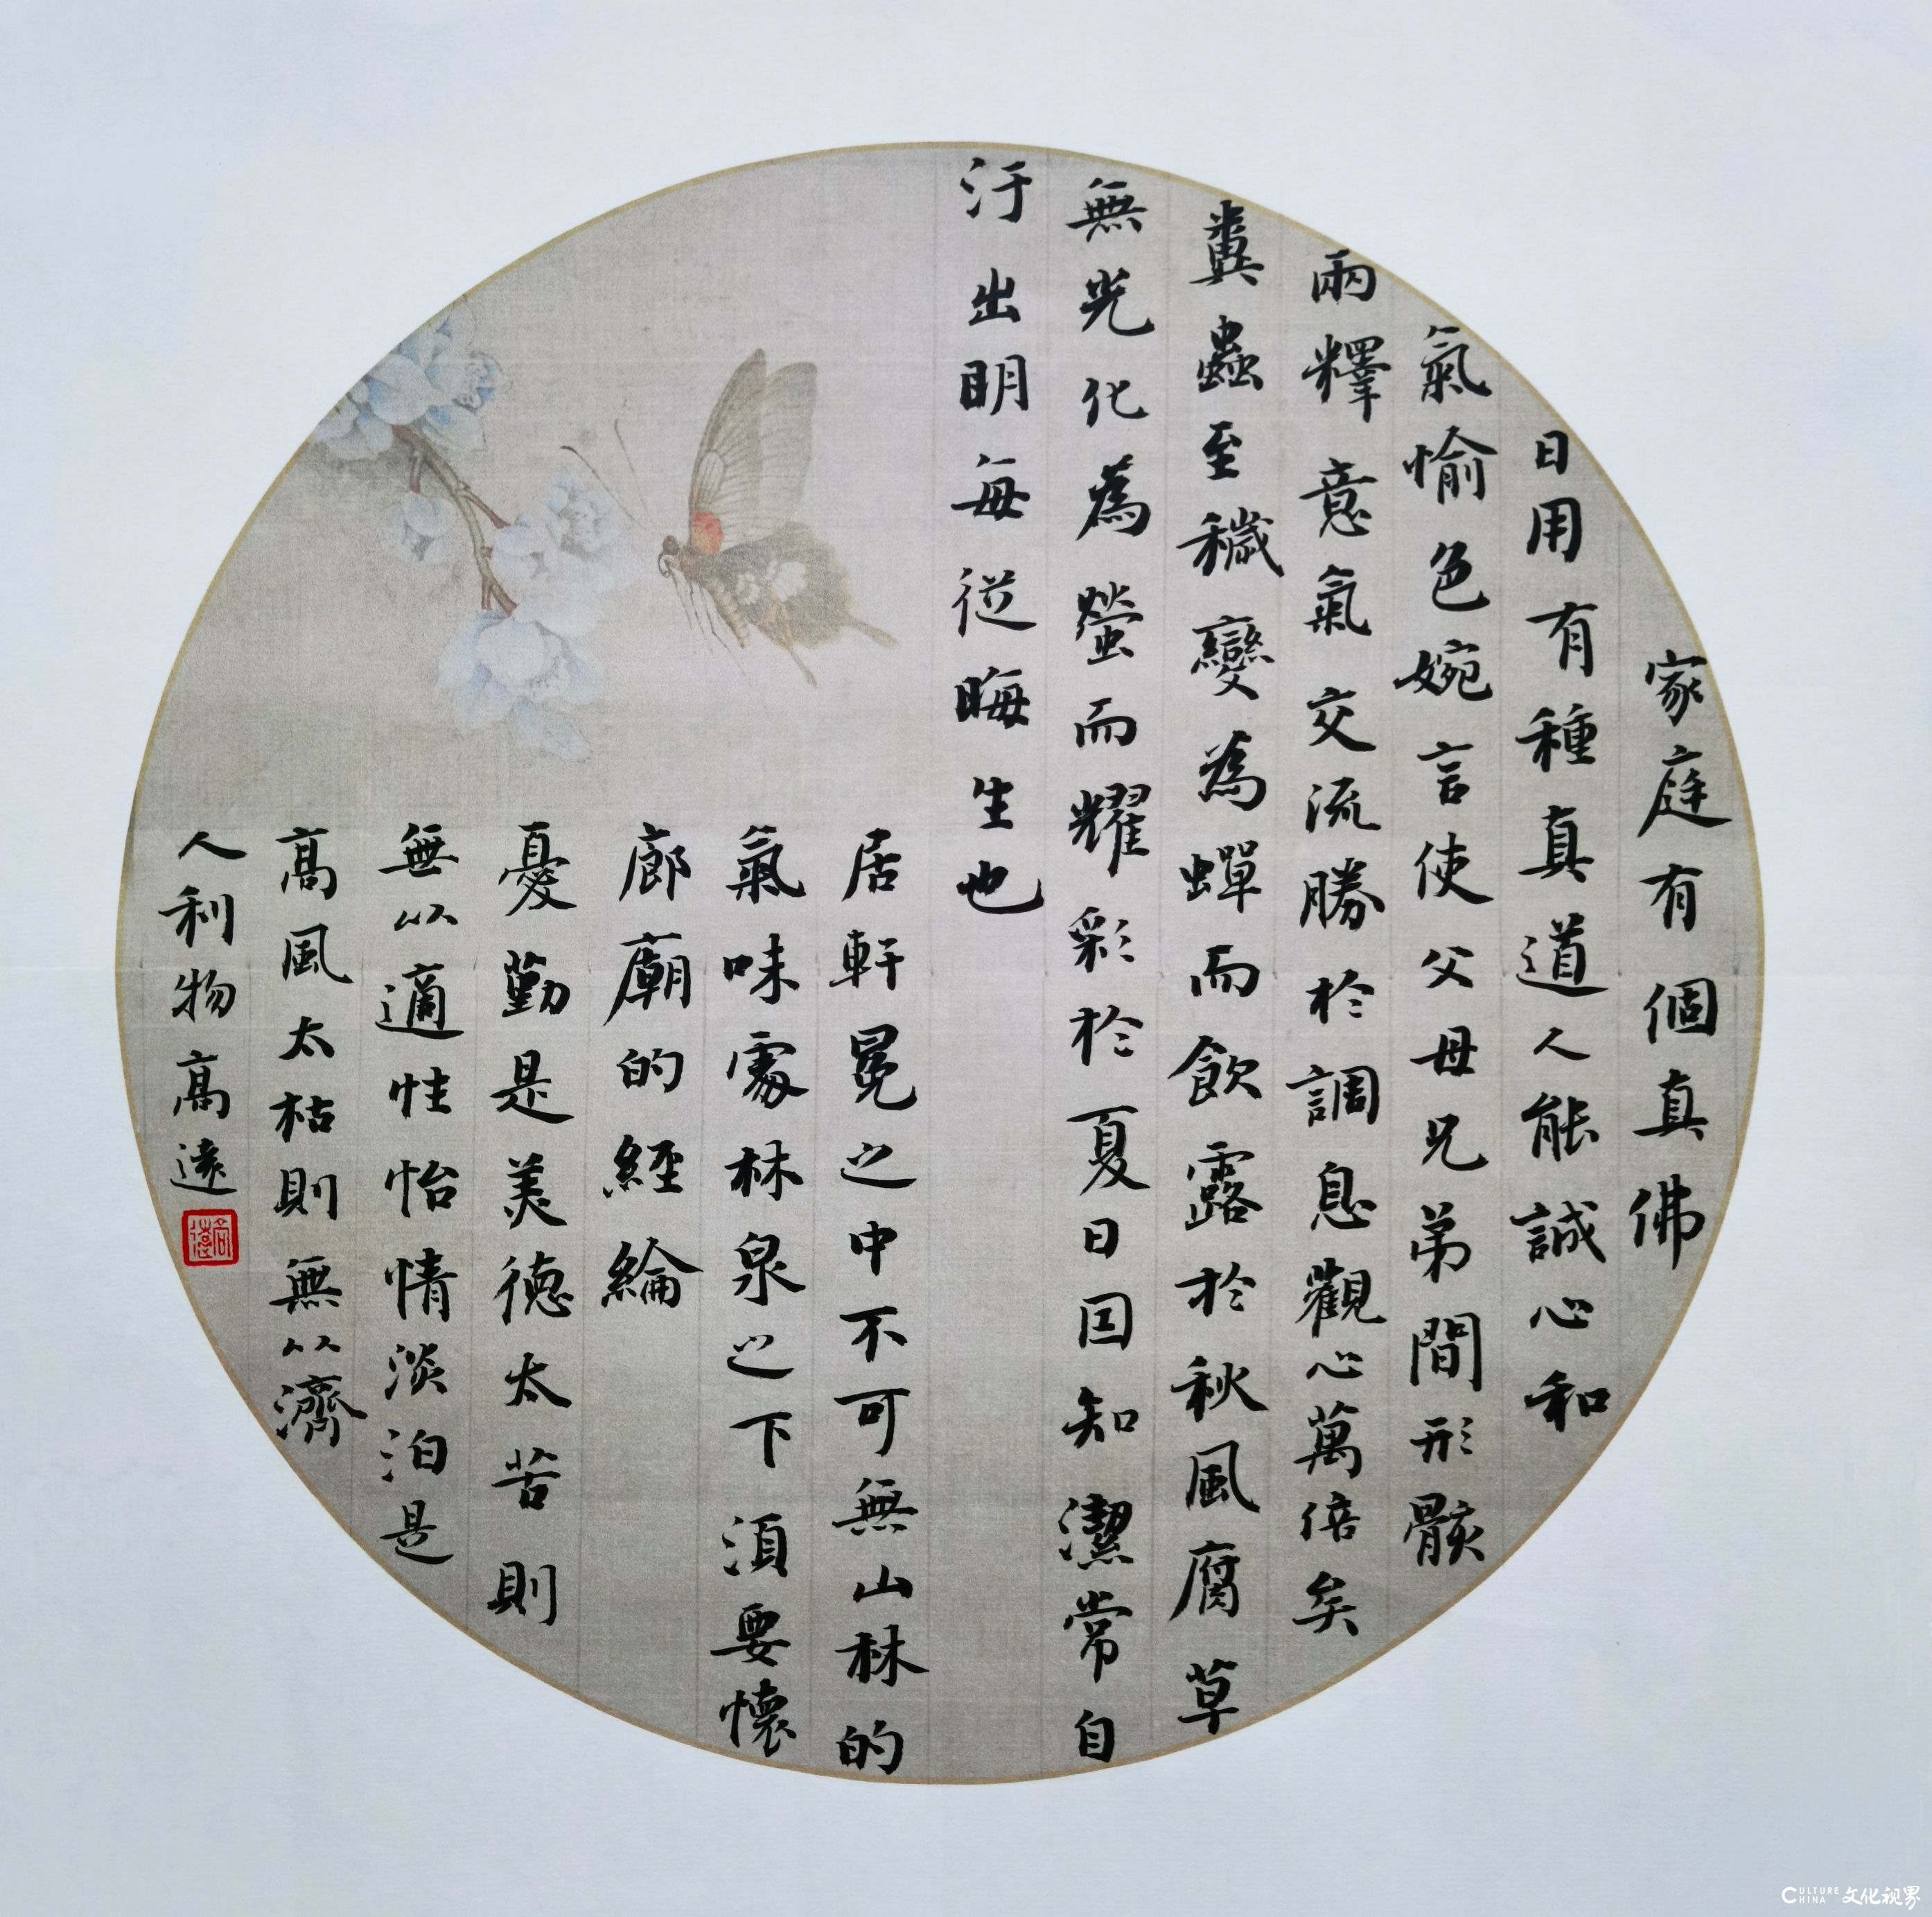 家庭有個真佛
日用有種真道人能誠心和
氣愉色婉言使父母兄弟間形骸
兩釋意氣交流勝於調息觀心萬倍矣
糞蟲至穢變為蟬而飲露於秋風腐草
無光化為螢而耀彩於夏日因知潔常自
汙出明每從晦生也
居軒冕之中不可無山林的
氣味處林泉之下須要懷
廊廟的經綸
憂勤是美德太苦則
無以適性怡情淡泊是
高風太枯則無以濟
人利物高遠
高遠
CULTURE CHINA 文化视界